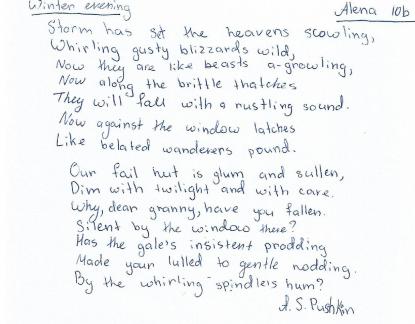 Winter evening
Alena 10b
Storm has set the heavens scowling,
Whirling gusty blizzards wild,
Now they are like beasts a-growling,
Now along the brittle thatches
They will fall with a rustling sound.
Now against the window latches
Like belated wanderers pound.
Our fail hut is glum and sullen,
Dim with twilight and with care.
Why, dear granny, have you fallen.
Silent by the window there?
Has the gale's insistent prodding
Made your lulled to gentle nodding.
By the whirling spindle's hum?
A. S. Pushkin